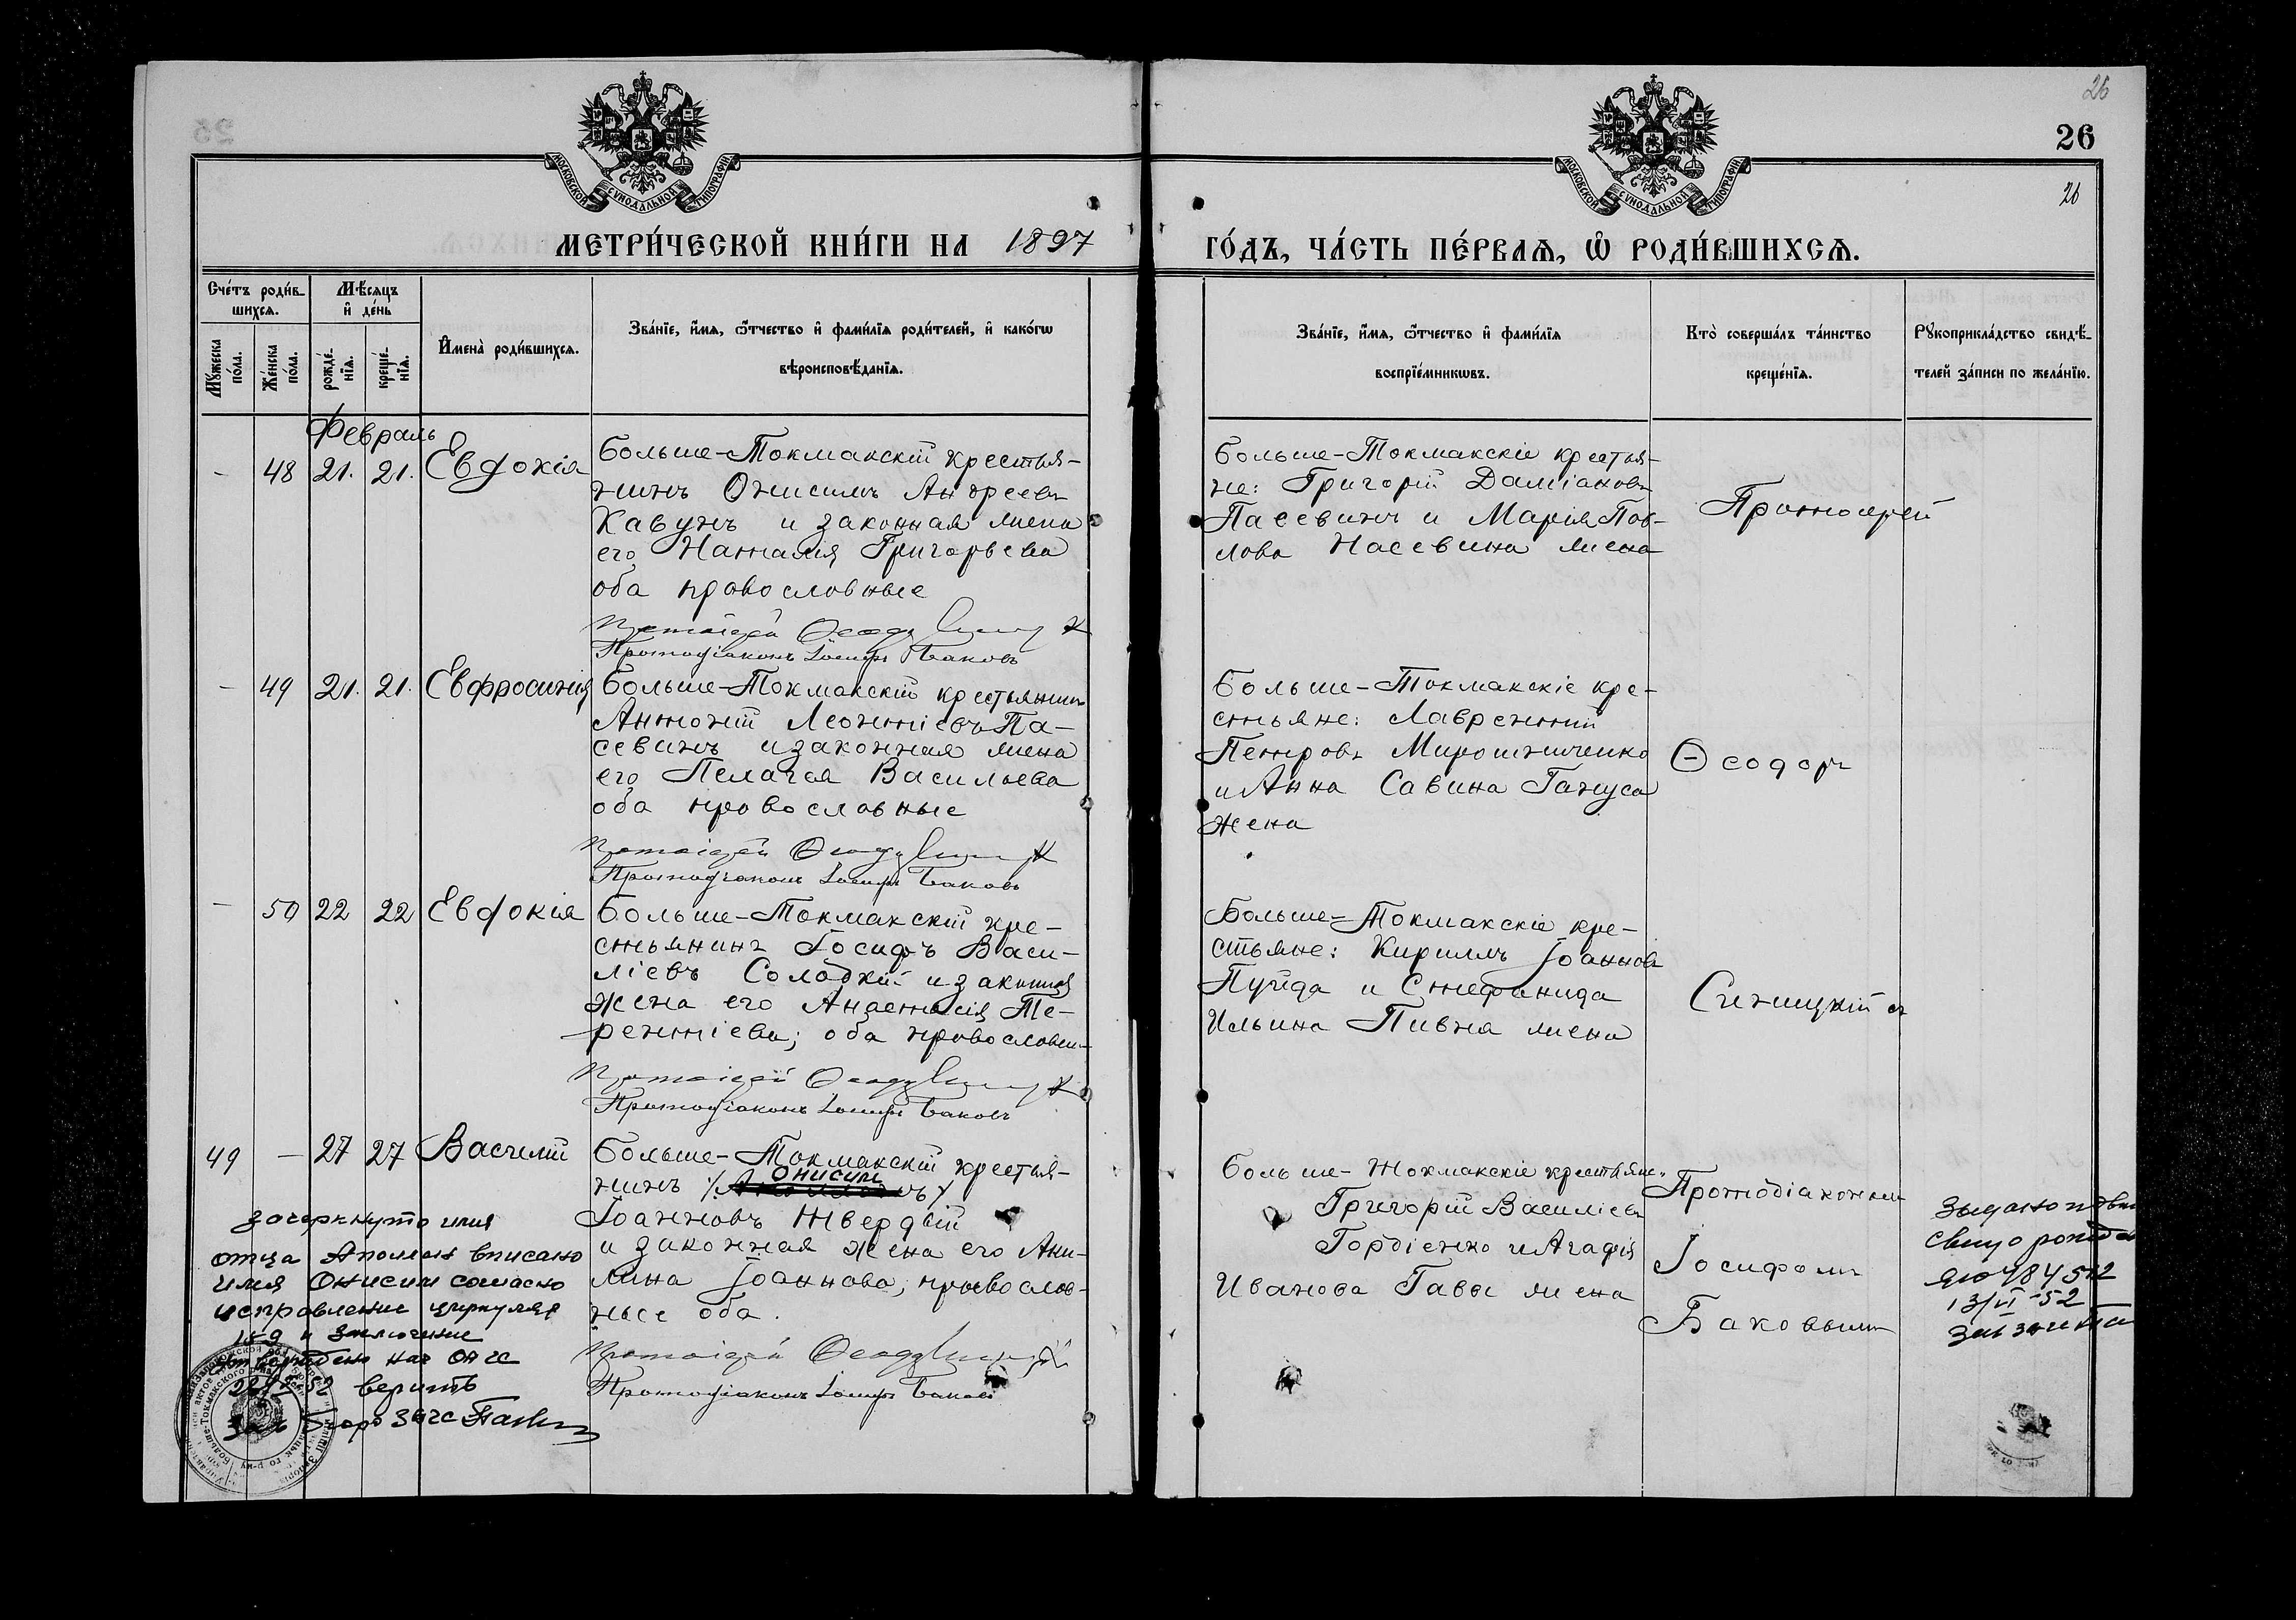 26
26
26
МОСКОВСКОЙ СУНОДАЛЬНОЙ ТИПОГРАФІИ
МОСКОВСКОЙ СУНОДАЛЬНОЙ ТИПОГРАФІИ
МЕТРИ́ЧЕСКОЙ КНИ́ГИ НА 1897
ГО́ДЪ, ЧА́СТЬ ПЕ́РВАѦ, Ѡ҆ РОДИ́ВШИХСѦ.
Сче́тъ роди́в-
шихсѧ.
Мѣ́сѧцъ
и҆ де́нь
Мꙋ́жеска
по́ла.
Же́нска
по́ла.
рожде́-
нїѧ.
креще́-
нїѧ.
И҆мена̀ роди́вшихсѧ.
Зва́нїе, и҆́мѧ, ѻ҆́тчество и҆ фами́лїѧ роди́телей, и҆ како́гѡ
вѣроисповѣ́данїѧ.
Зва́нїе, и҆́мѧ, ѻ҆́тчество и҆ фами́лїѧ
воспрїе́мникѡвъ.
Кто̀ соверша́лъ та́инство
креще́нїѧ.
Рꙋкоприкла́дство свидѣ́-
телей за́писи по жела́нїю.
Февраль
- 48 21. 21. Евдокія
Больше-Токмакскій крестья-
нинъ Онисимъ Андреевъ
Кавунъ и законная жена
его Наталія Григорьева
оба православные
Протоіерей Ѳеодоръ
Протодіаконъ Іосифъ Баковъ
Больше-Токмакскіе крестья-
не: Григорій Даміановъ
Пасевинъ и Марія Пав-
лова Насевина жена
Протоіерей
- 49 21. 21. Евфросинія
Больше-Токмакскій крестьянинъ
Антоній Леонтіевъ Па-
севинъ и законная жена
его Пелагея Васильева
оба православные
Протоіерей Ѳеодоръ
Протодіаконъ Іосифъ Баковъ
Больше-Токмакскіе кре-
стьяне: Лаврентій
Петровъ Мирошниченко
и Анна Савина Гануса
жена
Ѳеодоръ
- 50 22 22 Евдокія
Больше-Токмакскій кре-
стьянинъ Іосифъ Васи-
ліевъ Солодкій и законная
жена его Анастасія Те-
рентіева; оба православн-
Протоіерей Ѳеодоръ
Протодіаконъ Іосифъ Баковъ
Больше-Токмакскіе кре-
стьяне: Кириллъ Іоанновъ
Пуйда и Стефанида
Ильина Пивня жена
Синицкій съ
49 - 27 27 Василій
Больше-Токмакскій крестья-
нинъ Онисим
Іоанновъ Твердый
и законная жена его Аки-
лина Іоаннова, православ-
ные оба.
Протоіерей Ѳеодоръ
Протодіаконъ Іосифъ Баковъ
Больше-Токмакскіе крестьяне
Григорій Василіевъ
Гордіенко и Агафія
Иванова Гавы жена
Протодіакономъ
Іосифомъ
Баковымъ
зачеркнуто имя
отца Аполлон вписано
имя Онисим согласно
исправление циркуляр
159 и заключение
нач ОАГС
верить
бюро ЗАГС
Выдано повт
свид о рожд
484512
13/VI-52